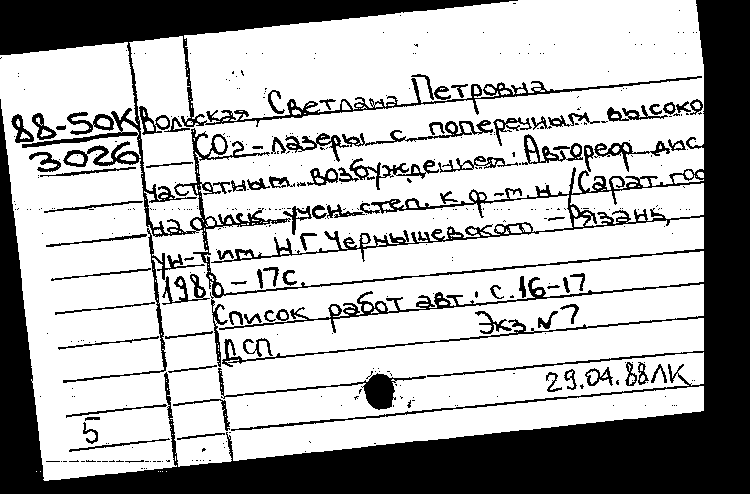 88-50К
3026
Вольская, Светлана Петровна.
СО2-лазеры с поперечным высоко
частотным возбуждением: Автореф дис.
на соиск. учен. степ. к. ф-м. н. /Сарат. гос
ун-т им. Н.Г. Чернышевского. -Рязань,
1988 - 17с.
Список работ авт.: с. 16-17.
Экз. N 7.
ДСП.
29.04.88ЛК
5